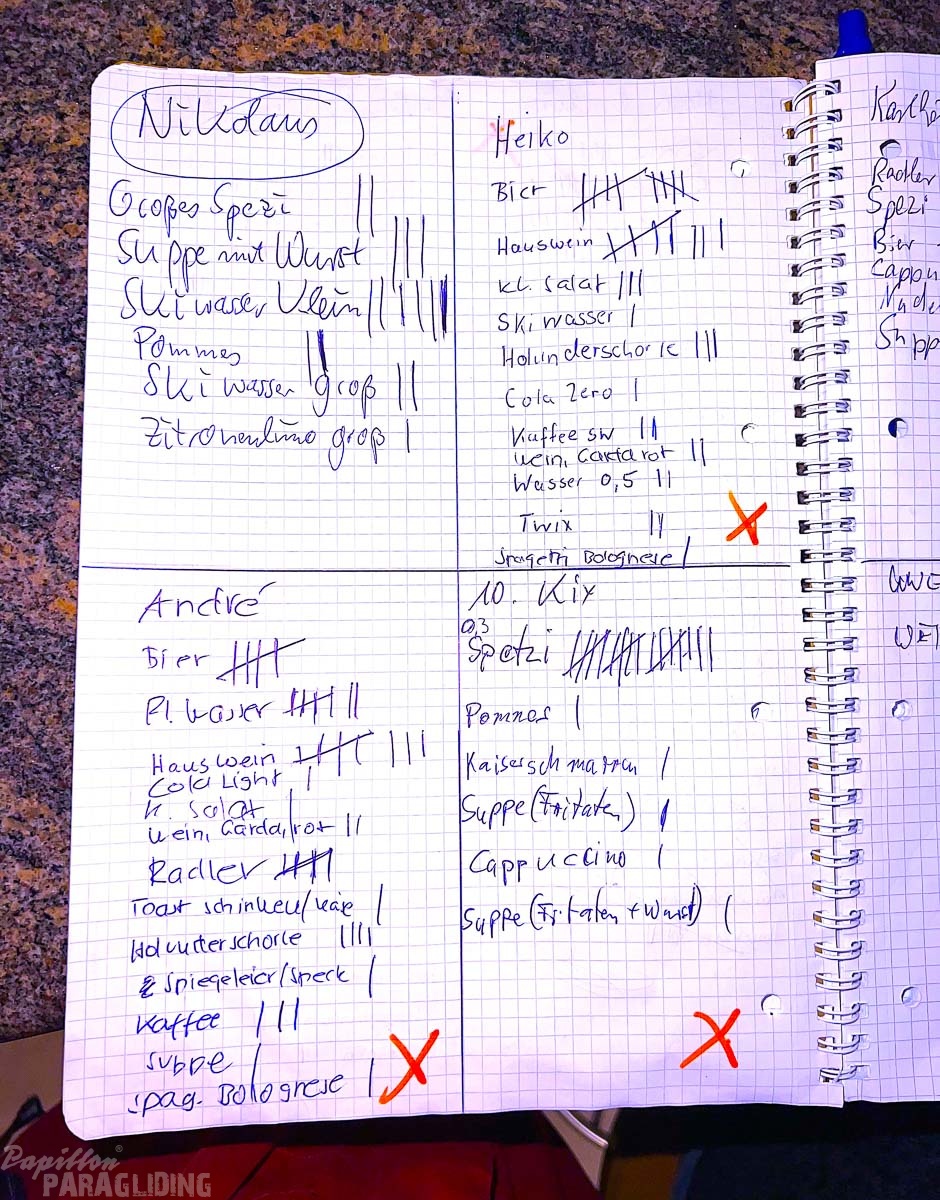 Nikolaus
Großes Spezi ||
Suppe mit Wurst |||
Skiwasser Klein ||||||
Pommes ||
Skiwasser groß ||
Zitronenlimo groß |
Heiko
Bier
Hauswein
kl. Salat |||
Skiwasser |
Holunderschorle |||
Cola Zero |
Kaffee sw ||
Wein, Garda rot ||
Wasser 0,5 ||
Twix ||
Spagetti Bolognese |
André
Bier
Fl. Wasser
Hauswein
Cola Light |
k. Salat |
Wein, Garda, rot ||
Radler
Toast Schinken/Käse |
Holunderschorle ||||
2 Spiegeleier/Speck |
Kaffee |||
Suppe |
Spag. Bolognese |
10. Kix
0,3
Spetzi
Pommes |
Kaiserschmarrn |
Suppe (Fritaten) |
Cappuccino |
Suppe (Fritaten + Wurst) |
Radler
Spezi
Bier
Cappu
Nude
Supp
Papillon®
PARAGLIDING